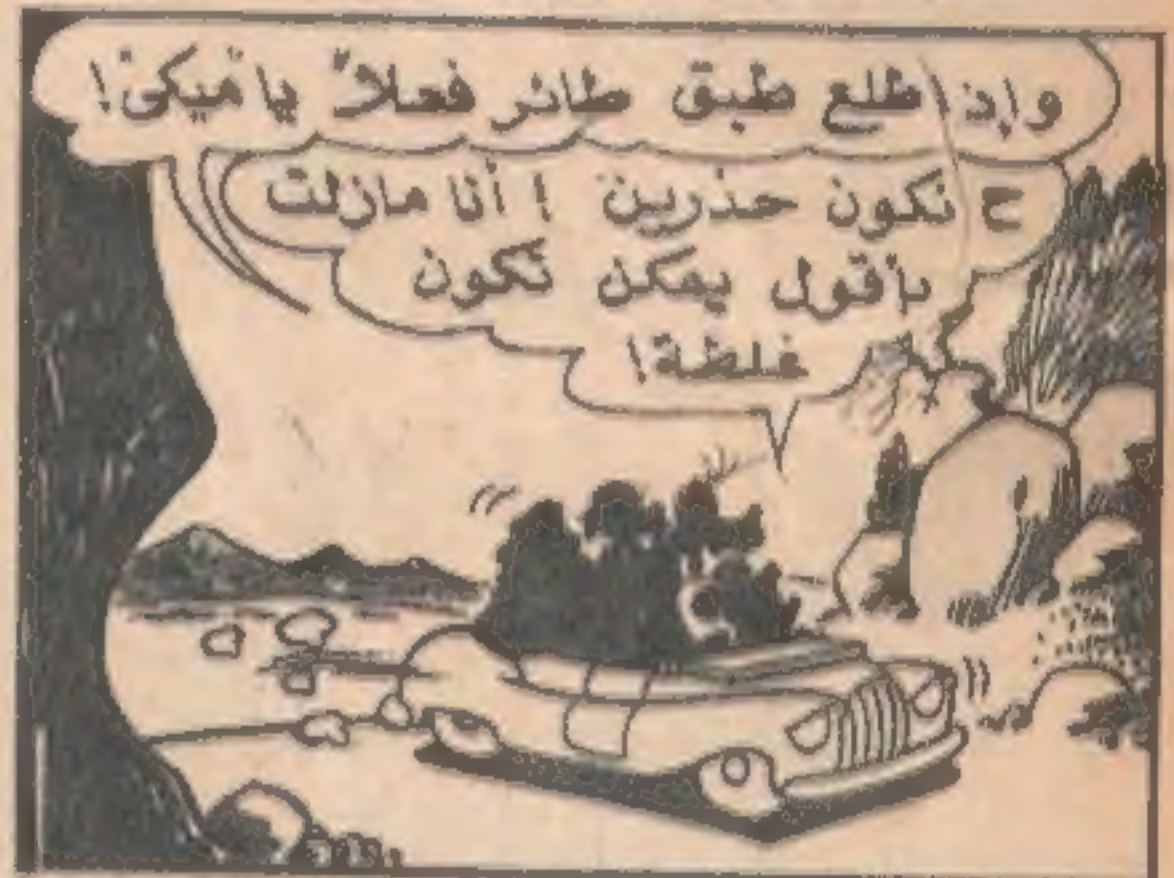 وإذا طلع طبق طائر فعلاً يا ميكي!
ح نكون حذرين ! أنا مازلت
بأقول يمكن تكون
غلطة!